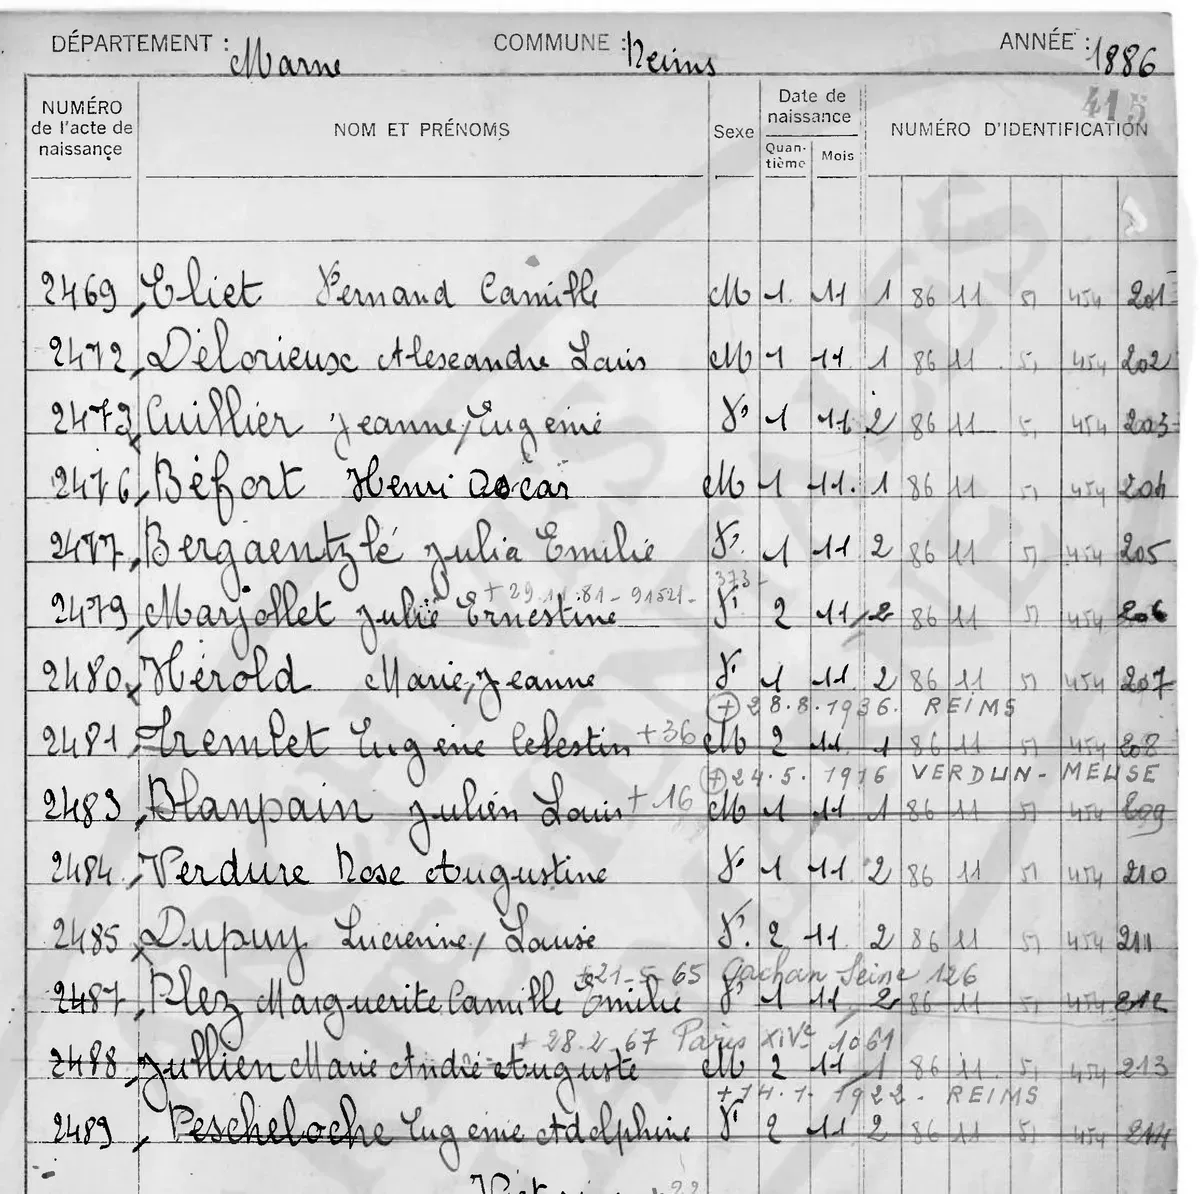 DÉPARTEMENT : Marne COMMUNE : Reims ANNÉE : 1886
415
NUMÉRO de l'acte de naissance NOM ET PRÉNOMS Sexe Date de naissance Quan-tième Mois NUMÉRO D'IDENTIFICATION
2469 Eliet Fernand Camille M 1 11 1 86 11 51 454 201
2472 Délorieux Alexandre Louis M 1 11 1 86 11 51 454 202
2473 Cuillier Jeanne, Eugénie F 1 11 2 86 11 51 454 203
2476 Béfort Henri Oscar M 1 11 1 86 11 51 454 204
2477 Bergaentzlé Julia Emilie F 1 11 2 86 11 51 454 205
+ 29.11.81 - 91521 - 373 -
2479 Marjollet Julie Ernestine F 2 11 2 86 11 51 454 206
2480 Hérold Marie, Jeanne F 1 11 2 86 11 51 454 207
+ 28.8.1936. REIMS
2481 Tremlet Eugène Célestin + 36 M 2 11 1 86 11 51 454 208
+ 24.5.1916 VERDUN - MEUSE
2483 Blanpain Julien Louis + 16 M 1 11 1 86 11 51 454 209
2484 Verdure Rose Augustine F 1 11 2 86 11 51 454 210
2485 Dupuy Lucienne, Louise F 2 11 2 86 11 51 454 211
+ 21-5-65 Cachan Seine 126
2487 Plez Marguerite Camille Emilie F 1 11 2 86 11 51 454 212
+ 28.2.67 Paris XIVe 1061
2488 Jullien Marie André Auguste M 2 11 1 86 11 51 454 213
+ 14.1.1922. REIMS
2489 Pescheloche Eugénie Adelphine F 2 11 2 86 11 51 454 214
+ 22